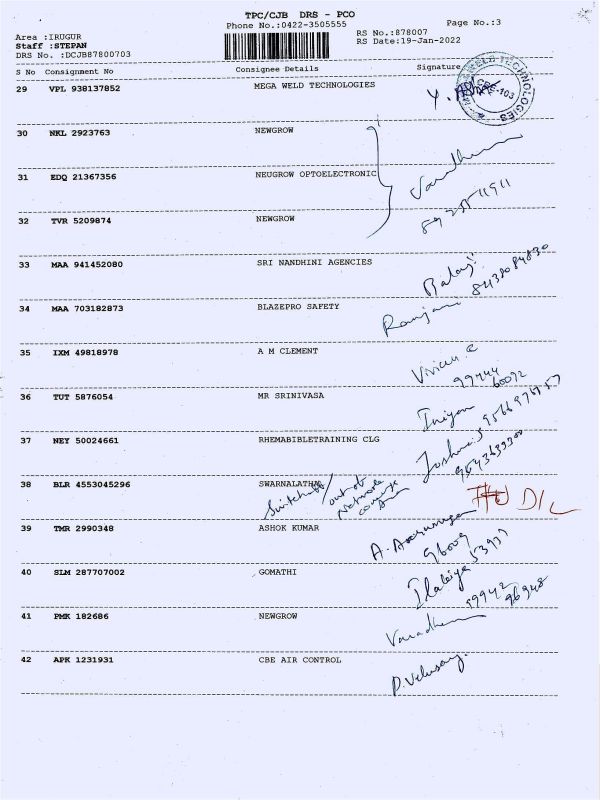 TPC/CJB DRS - PCO
Phone No.:0422-3505555
Page No.:3
Area :IRUGUR
RS No.:878007
Staff :STEPAN
RS Date:19-Jan-2022
DRS No. :DCJB87800703
S No Consignment No Consignee Details Signature
29 VPL 938137852 MEGA WELD TECHNOLOGIES
CBE-103
30 NKL 2923763 NEWGROW
31 EDQ 21367356 NEUGROW OPTOELECTRONIC
Varadhan
32 TVR 5209874 NEWGROW
33 MAA 941452080 SRI NANDHINI AGENCIES
Balaji
34 MAA 703182873 BLAZEPRO SAFETY
Ranjani
35 IXM 49818978 A M CLEMENT
36 TUT 5876054 MR SRINIVASA
Iniyan
37 NEY 50024661 RHEMABIBLETRAINING CLG
Joshua
38 BLR 4553045296 SWARNALATHA
Switchoff/ out of
Network
coverage
Area
39 TMR 2990348 ASHOK KUMAR
40 SLM 287707002 GOMATHI
41 PMK 182686 NEWGROW
Varadhan
42 APK 1231931 CBE AIR CONTROL
P. Velusamy